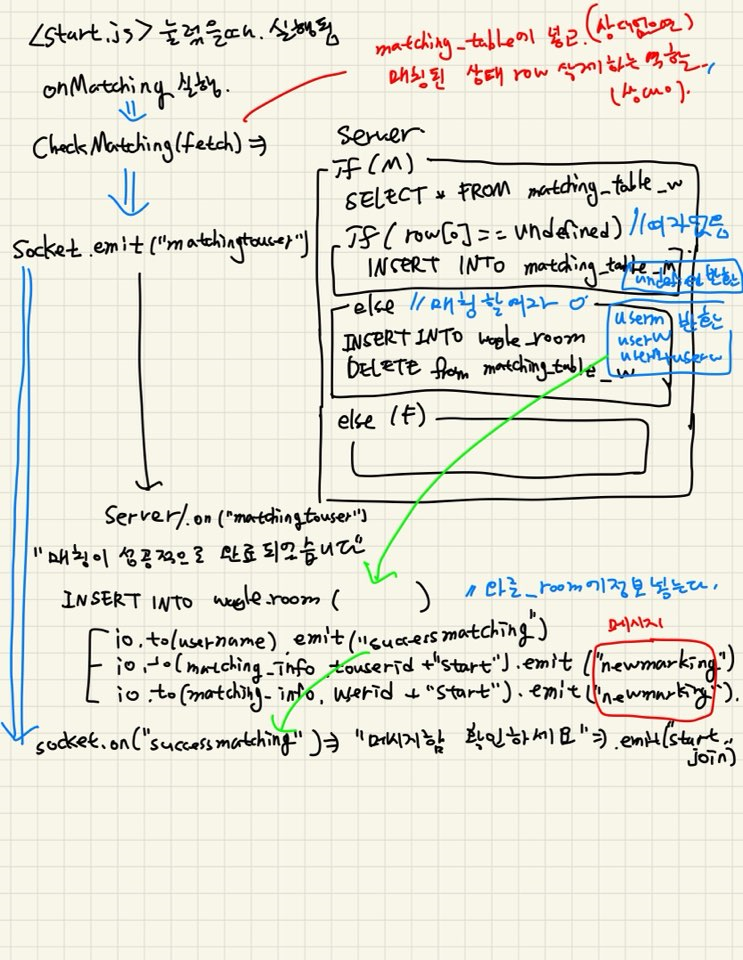 <start.js> 눌렀을때. 실행됨
matching_table에 넣고.(상대없으면)
매칭된 상태 row 삭제하는 역할.
(상대O).
onMatching 실행.
CheckMatching(fetch) ⇒
Server
if (M)
SELECT * FROM matching_table_w
if ( row[0] == undefined) //여자없음
INSERT INTO matching_table_m
undefined 반환
else //매칭할여자 O
userm 반환
userw
INSERT INTO woole_room
DELETE from matching_table_w
else (F)
Socket.emit("matchingtouser")
Server/.on("matchingtouser")
"매칭이 성공적으로 완료되었습니다"
INSERT INTO woole.room ( )
//와글_room에정보넣는다.
io.to(username).emit("successmatching")
메시지
io.to(matching_info.touserid+"start").emit("newmarking")
io.to(matching_info.userid+"start").emit("newmarking").
socket.on("successmatching")⇒ "메시지함 확인하세요"⇒.emit("start
join")